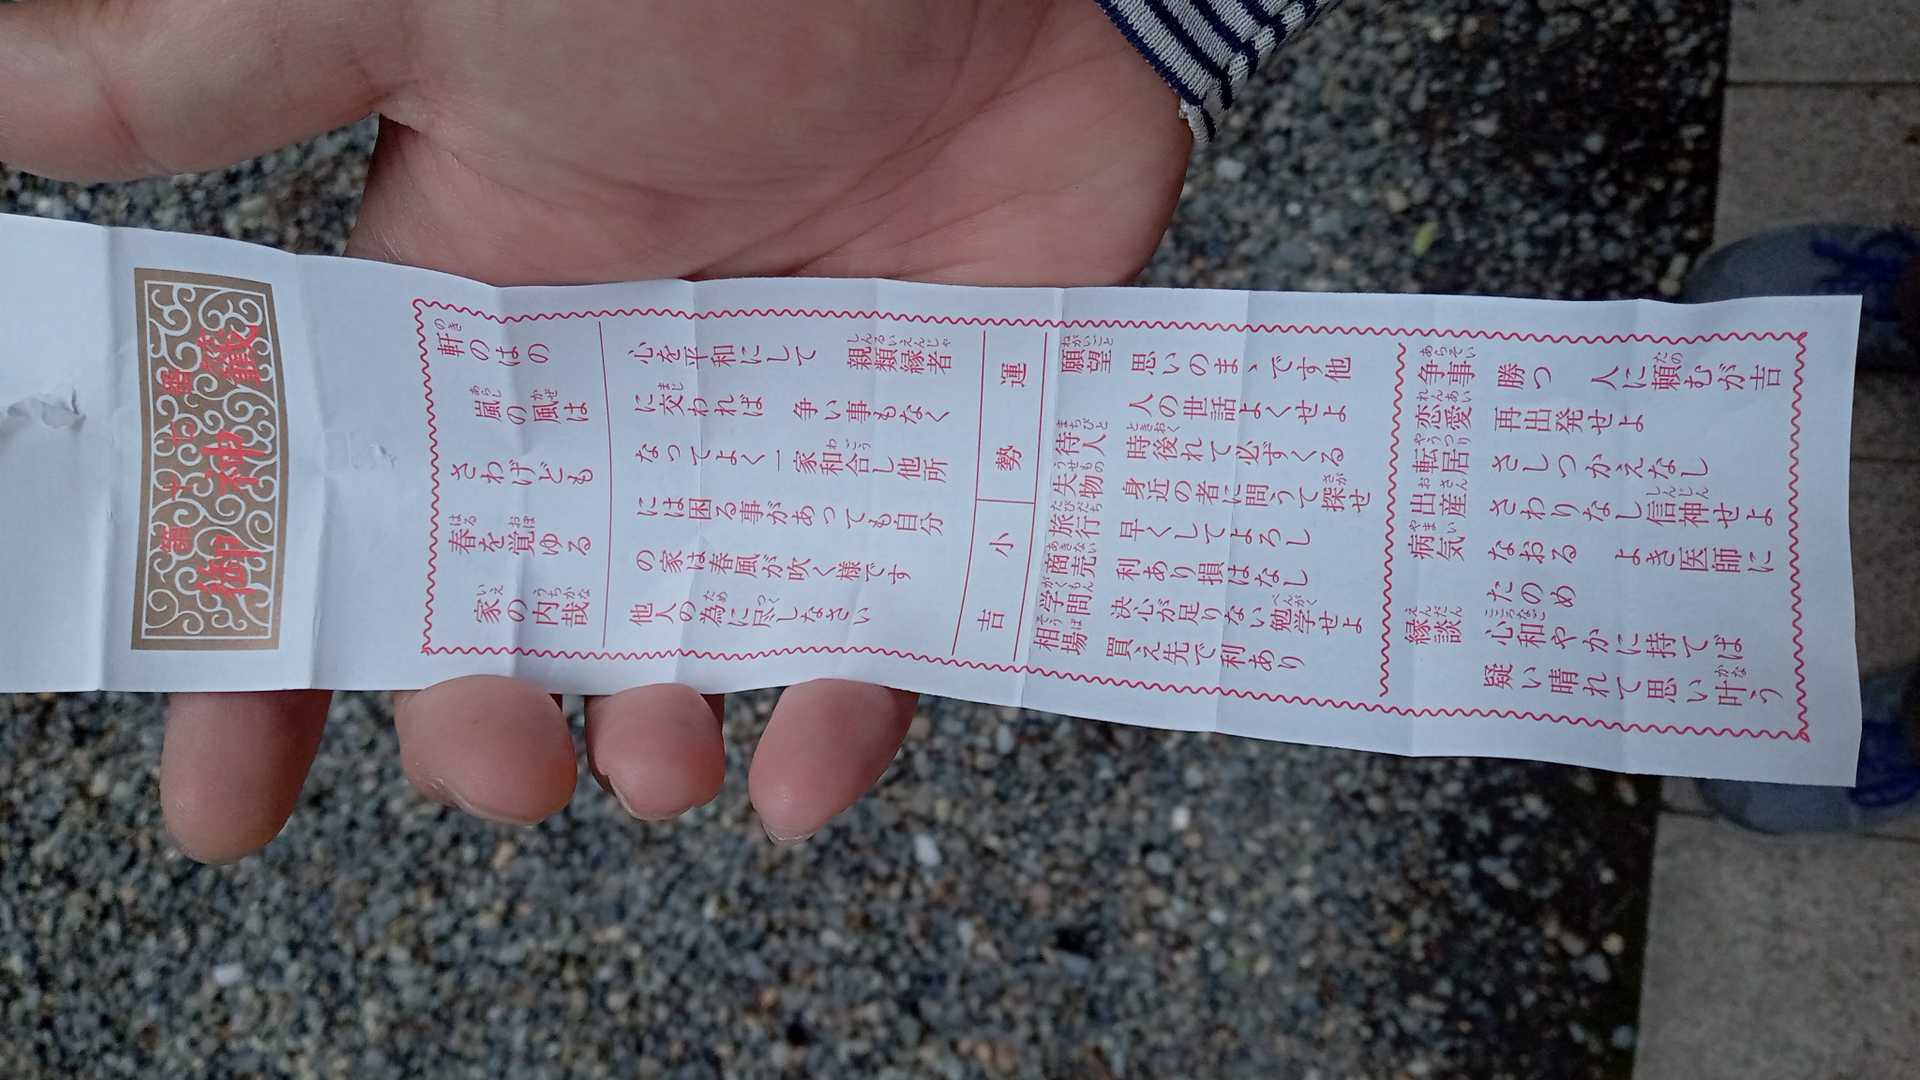 御神籤
軒のはの
嵐の風は
さわげども
春を覚ゆる
家の内哉
心を平和にして　親類縁者
に交われば　争い事もなく
なってよく一家和合し他所
には困る事があっても自分
の家は春風が吹く様です
他人の為に尽しなさい
運勢　小吉
願望　思いのまゝです他
人の世話よくせよ
待人　時後れて必ずくる
失物　身近の者に問うて探せ
旅行　早くしてよろし
商売　利あり損はなし
学問　決心が足りない勉学せよ
相場　買え先で利あり
争事　勝つ　人に頼むが吉
恋愛　再出発せよ
転居　さしつかえなし
出産　さわりなし信神せよ
病気　なおる　よき医師に
たのめ
縁談　心和やかに持てば
疑い晴れて思い叶う